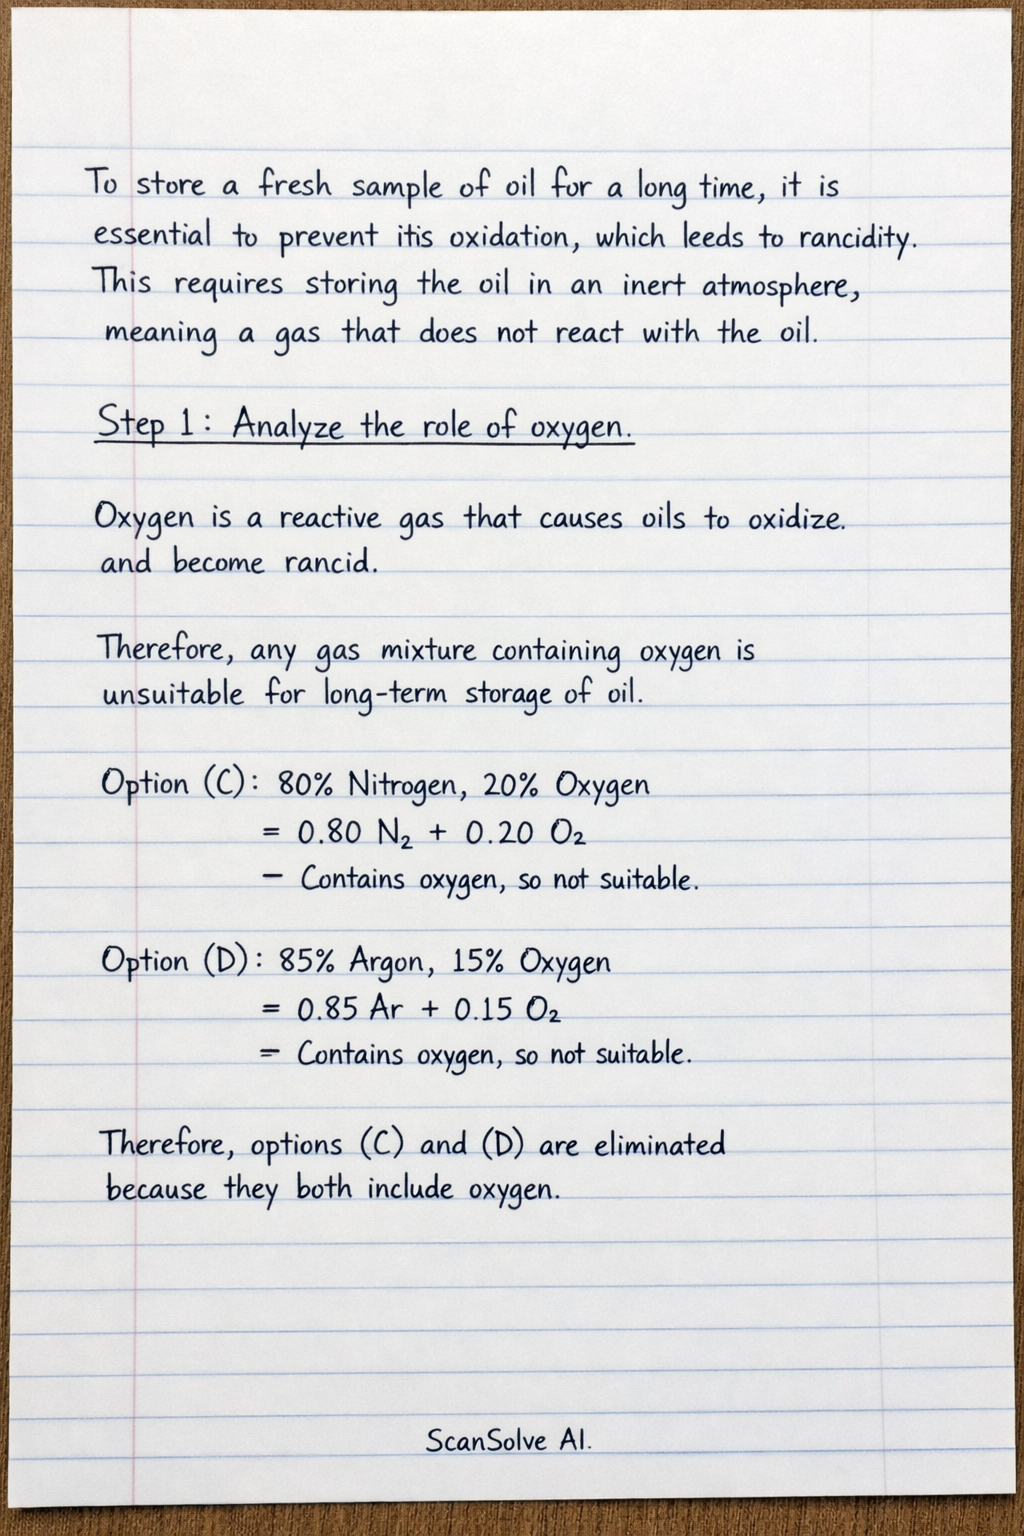 To store a fresh sample of oil for a long time, it is
essential to prevent itis oxidation, which leeds to rancidity.
This requires storing the oil in an inert atmosphere,
meaning a gas that does not react with the oil.
Step 1: Analyze the role of oxygen.
Oxygen is a reactive gas that causes oils to oxidize.
and become rancid.
Therefore, any gas mixture containing oxygen is
unsuitable for long-term storage of oil.
Option (C): 80% Nitrogen, 20% Oxygen
= 0.80 N₂ + 0.20 O₂
– Contains oxygen, so not suitable.
Option (D): 85% Argon, 15% Oxygen
= 0.85 Ar + 0.15 O₂
= Contains oxygen, so not suitable.
Therefore, options (C) and (D) are eliminated
because they both include oxygen.
ScanSolve AI.